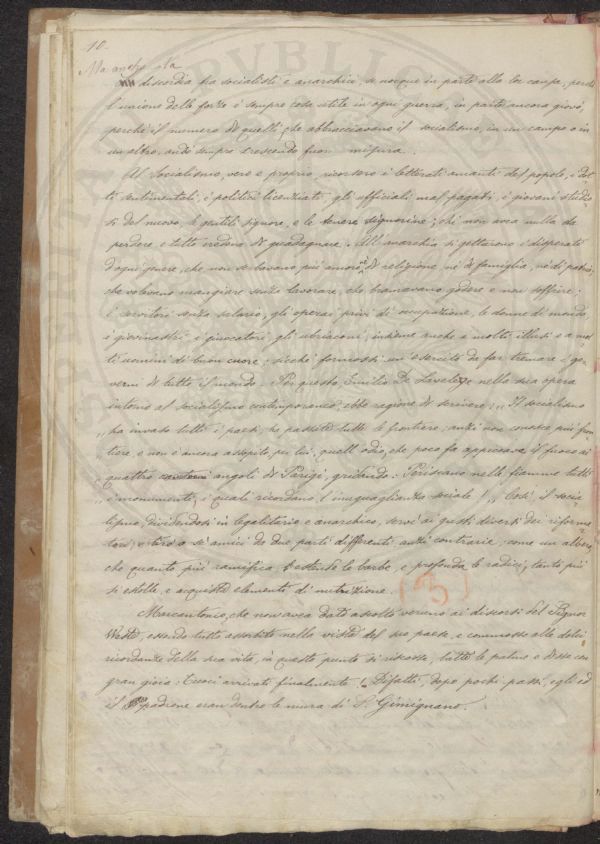 10.
Ma anche la
discordia fra socialisti e anarchici, se nocque in parte alla lor causa, perché
l'unione delle forze è sempre cosa utile in ogni guerra, in parte ancora giovò,
perché il numero di quelli, che abbracciavano il socialismo, in un campo o in
un altro, andò sempre crescendo fuor misura.
Al Socialismo, vero e proprio, ricorsero i letterati amanti del popolo, i dot-
ti sentimentali, i politici licenziati, gli ufficiali mal pagati, i giovani studio-
si del nuovo, le gentili signore, e le tenere signorine; chi non avea nulla da
perdere, e tutto credeva di guadagnare. All'anarchia si gettarono i disperati
d'ogni genere, che non sentivano più amore, nè di religione, nè di famiglia, nè di patria,
che volevano mangiare senza lavorare, che bramavano godere e non soffrire;
i servitori senza salario, gli operai privi di occupazione, le donne di mondo,
i giovinastri, i giuocatori, gli ubriaconi, insieme anche a molti illusi e a mol-
ti uomini di buon cuore: sicché formossi un esercito da far tremare i go-
verni di tutto il mondo. Per questo, Emilio De Laveleye nella sua opera
intorno al socialismo contemporaneo, ebbe ragione di scrivere: „ Il socialismo
„ ha invaso tutti i paesi, ha passato tutte le frontiere, anzi non conosce più fron-
tiere, e non è ancora assopito, per lui, quell'odio, che poco fa appiccava il fuoco ai
quattro angoli di Parigi, gridando: Periscano nelle fiamme tutti
„ i monumenti, i quali ricordano l'inuguaglianza sociale! „ Così, il socia-
lismo, dividendosi in legalitario e anarchico, servì ai gusti diversi dei riforma-
tori, e tirò a sè amici da due parti differenti anzi contrarie, come un albero,
che quanto più ramifica, e estende le barbe, e profonda le radici, tanto più
si estolle e acquista elementi di nutrizione.
(3)
Marcantonio, che non avea dato ascolto veruno ai discorsi del Signor
West, essendo tutto assorbito nella vista del suo paese, e commosso alle dolci
ricordanze della sua vita, in questo punto si riscosse, battè le palme e disse con
gran gioia: Eccoci arrivati finalmente! Difatti, dopo pochi passi, egli ed
il padrone eran dentro le mura di S. Gimignano.